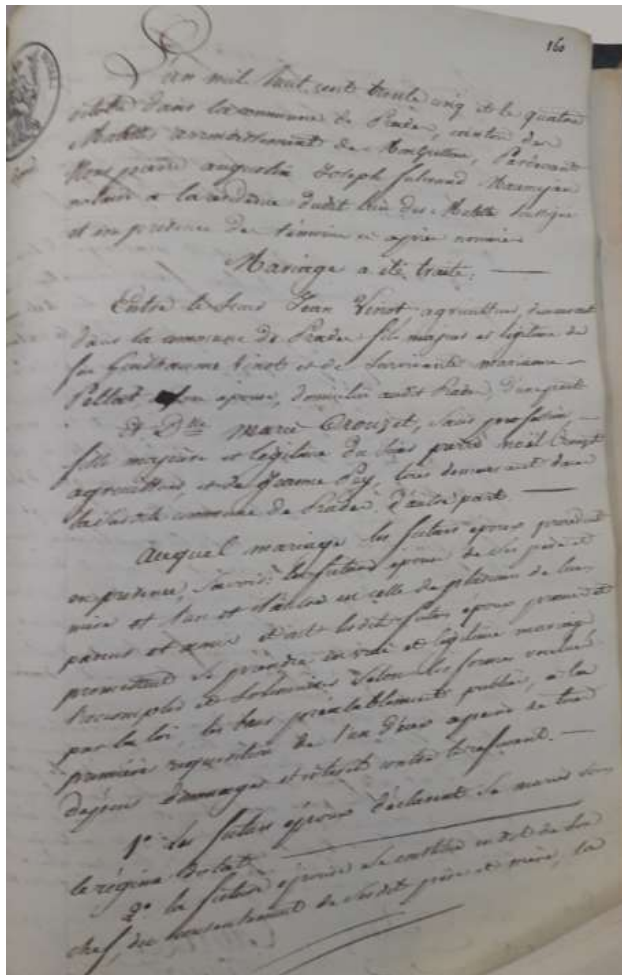 160
L'an mil huit cent trente cinq et le quatre
octobre dans la commune de Prades, canton des
Matelles arrondissement de Montpellier, Pardevant
Nous pierre augustin Joseph
notaire a la résidence dudit lieu des Matelles soussigné
et en présence de témoins ci après nommés
Mariage a été traité;
Entre le Sieur Jean Vinot agriculteur, demeurant
dans la commune de Prades fils majeur et légitime de
feu Guilhaume Vinot et de Survivante marianne
Pellat son épouse, domicilié audit Prades, d'une part
Et Dlle Marie Crouzet, sans profession
fille majeure et légitime du Sieur pierre noël Crouzet
agriculteur, et de Jeanne Puy, tous demeurant dans
la susdite commune de Prades, d'autre part
Auquel mariage les futurs époux procèdent
en présence, Savoir: la future épouse de Ses père et
mère et l'un et l'autre en celle de plusieurs de leurs
parens et amis et ont lesdits futurs époux promis et
promettent se prendre en vrai et légitime mariage
l'accomplir et Solenniser Selon les formes voulues
par la loi, les bans préalablement publiés, à la
première réquisition de l'un d'eux apeine de tous
dépens dommages et intérêts contre le refusant.
1° Les futurs époux déclarent Se marier Sous
le régime Dotal
2° la future épouse Se constitue en dot de Son
chef, du consentement de Sesdits père et mère, la